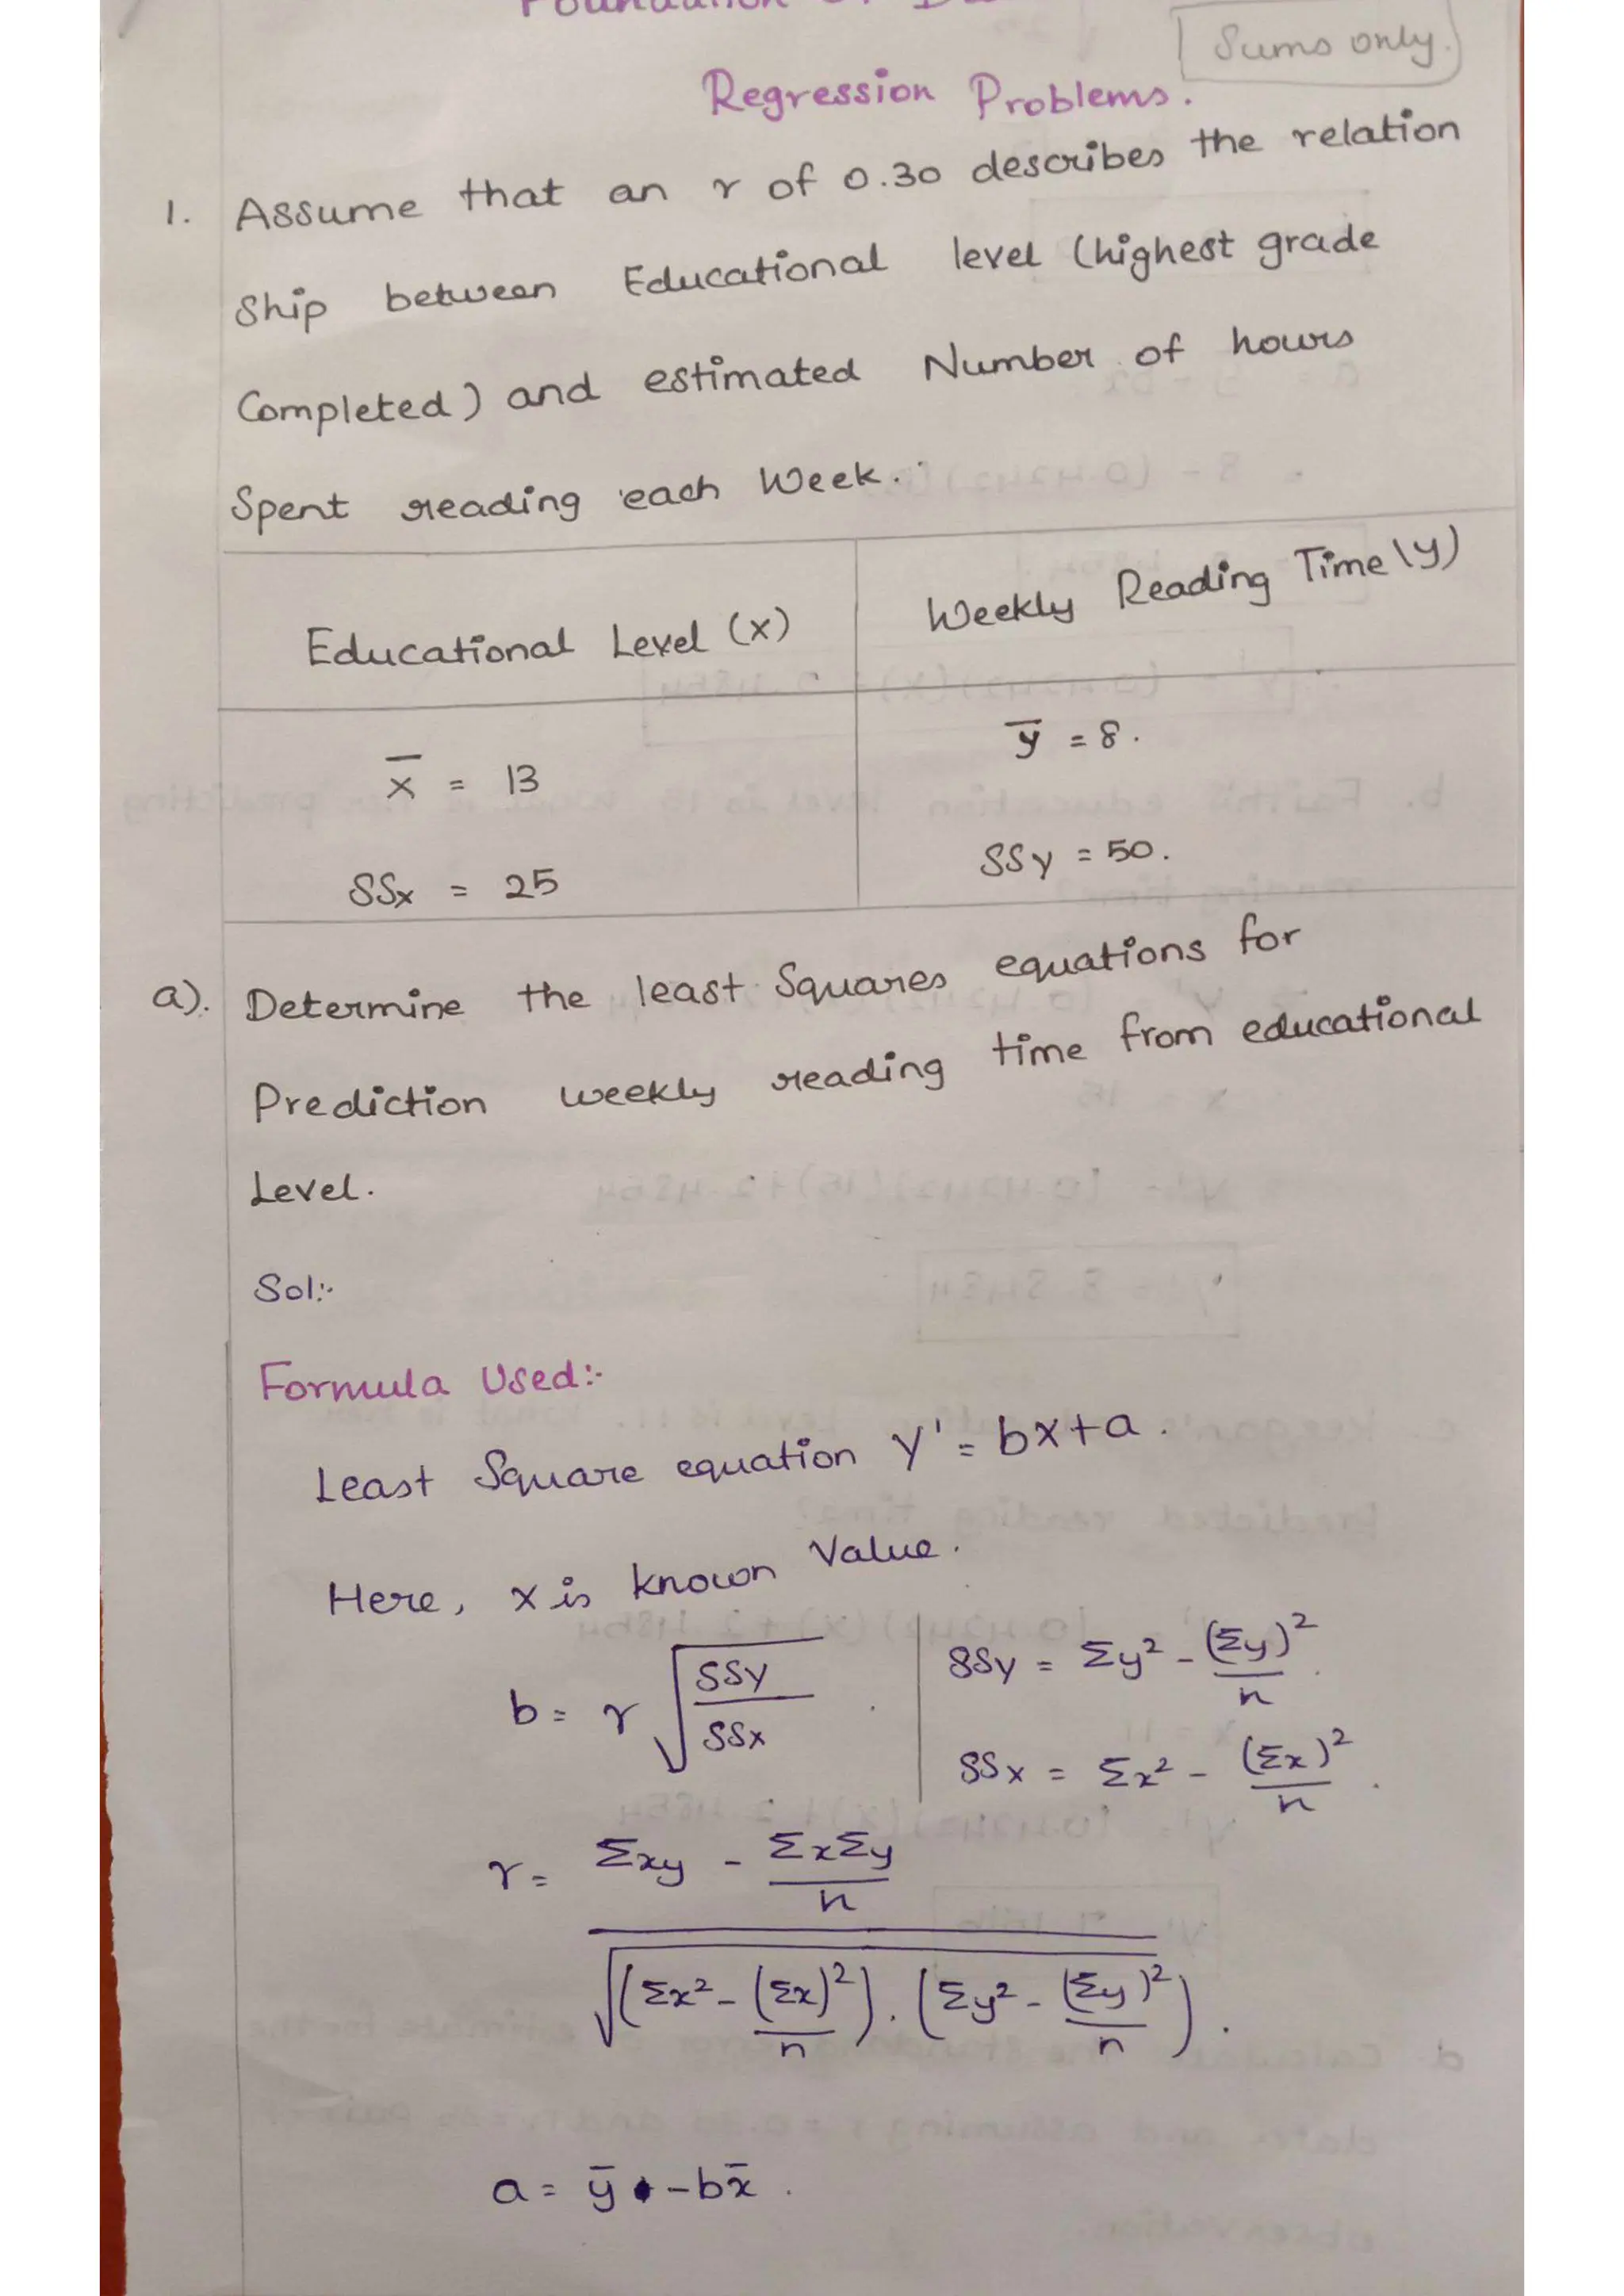 Sums only.
Regression Problems.
1. Assume that an r of 0.30 describes the relation
Ship between Educational level (highest grade
Completed) and estimated Number of hours
Spent reading each Week.
Educational Level (x)
Weekly Reading Time (y)
x̅ = 13
y̅ = 8.
SSx = 25
SSy = 50.
a). Determine the least Squares equations for
Prediction weekly reading time from educational
Level.
Sol:-
Formula Used:-
Least Square equation Y' = bx+a.
Here, x is known Value.
b = r √(SSy / SSx)
SSy = Σy² - (Σy)²/n.
SSx = Σx² - (Σx)²/n.
r = (Σxy - ΣxΣy/n) / √((Σx² - (Σx)²/n) . (Σy² - (Σy)²/n)).
a = y̅ - bx̅.